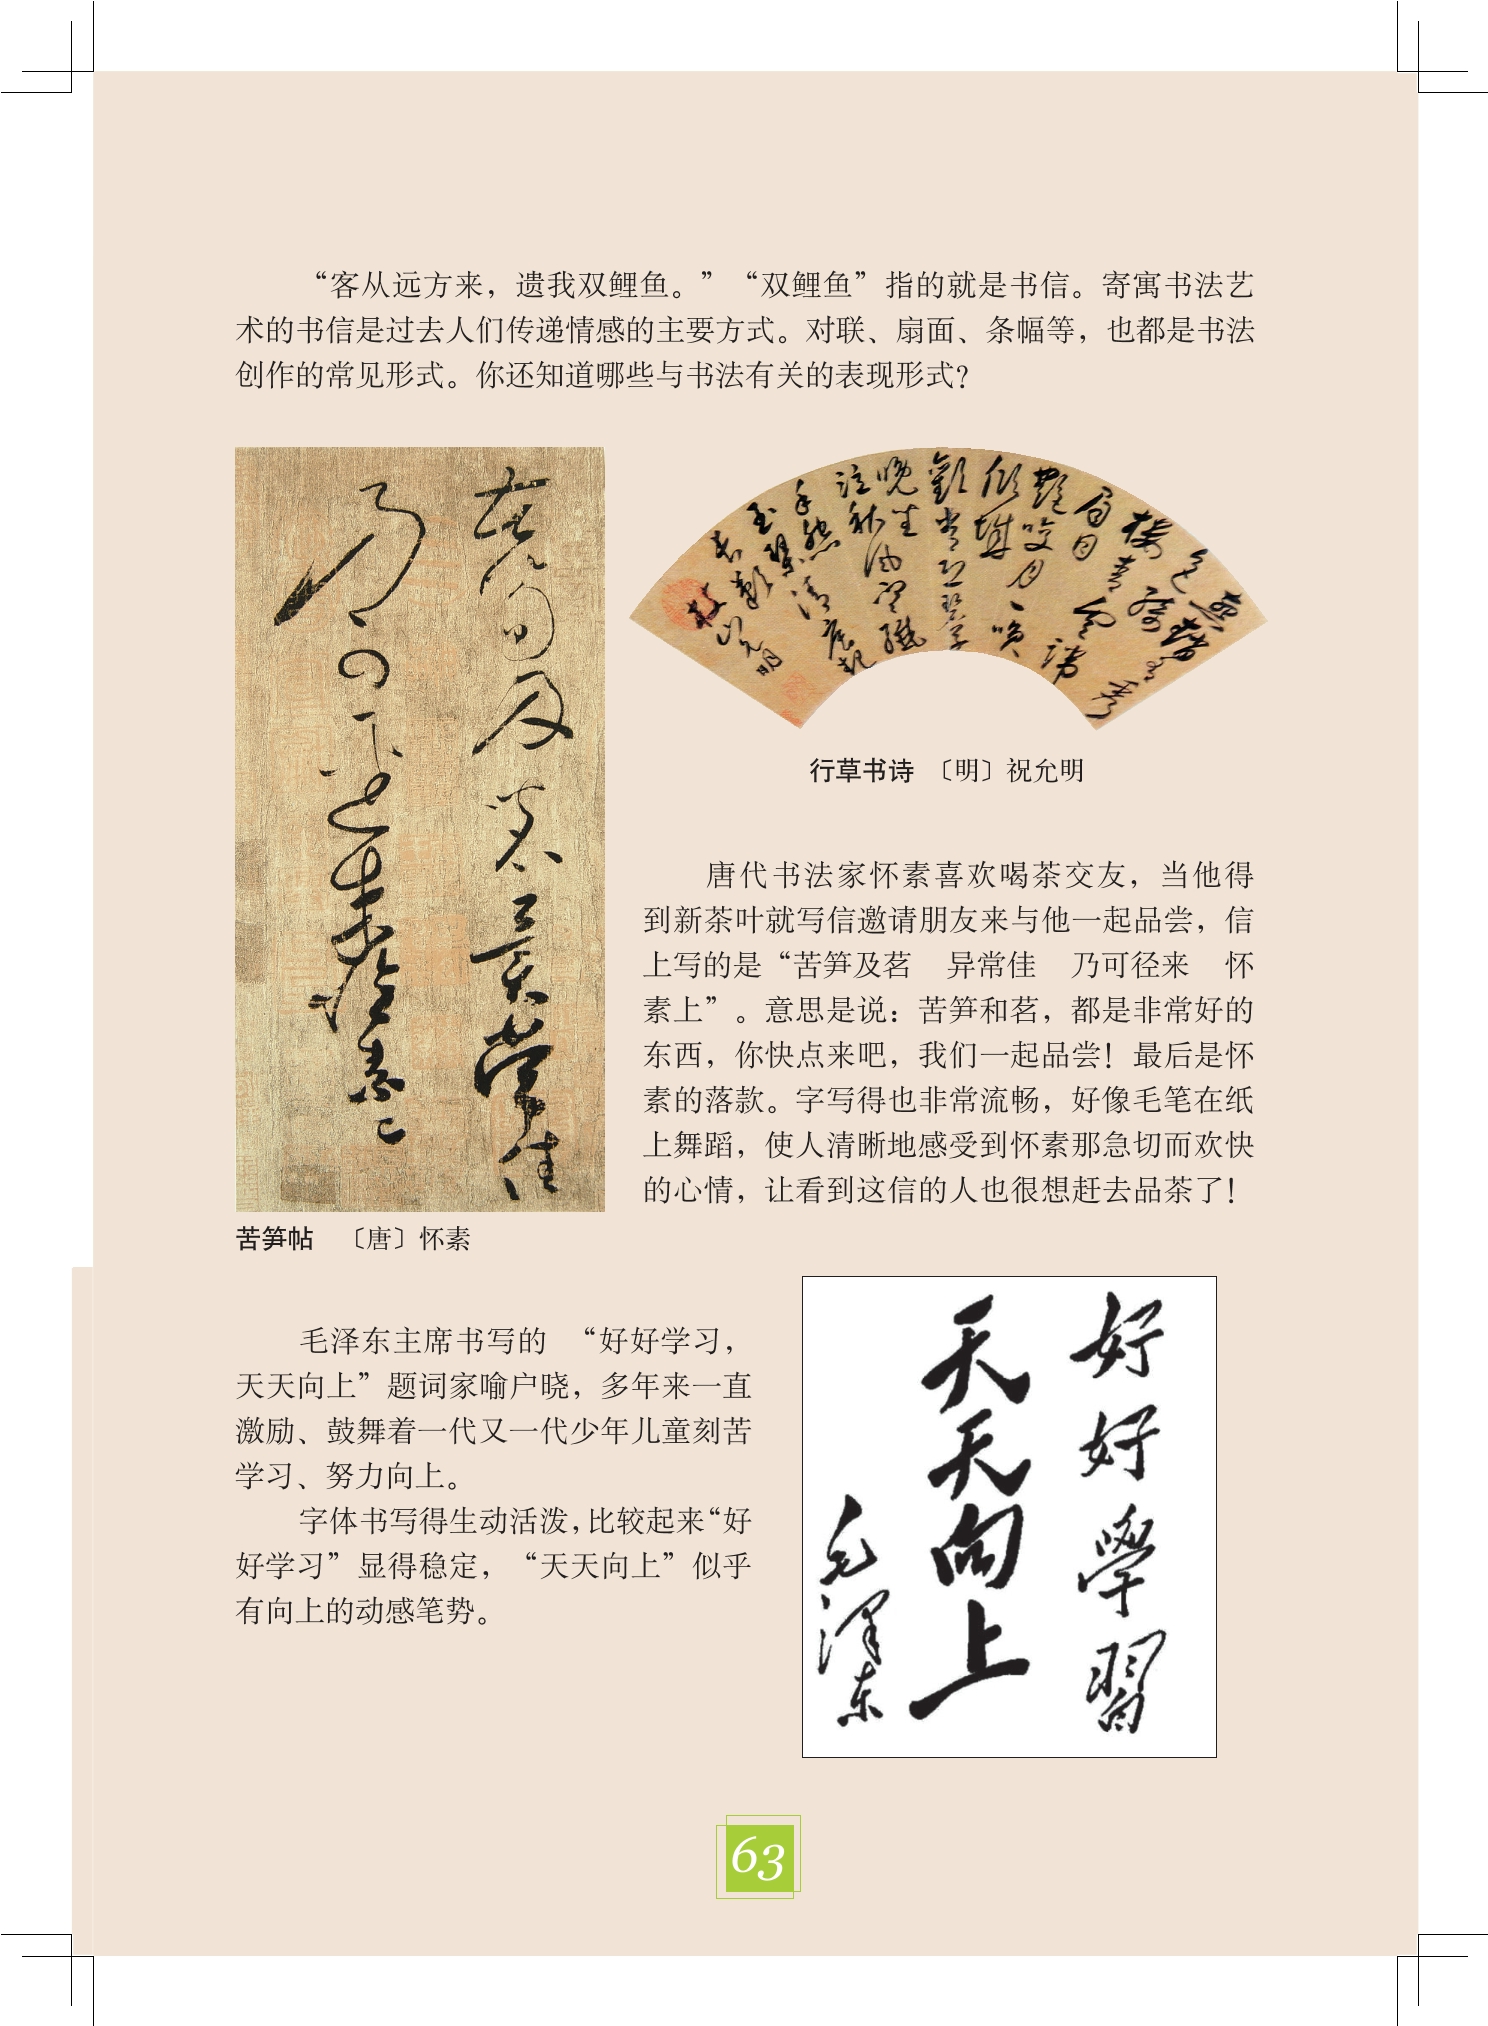 “客从远方来，遗我双鲤鱼。”“双鲤鱼”指的就是书信。寄寓书法艺
术的书信是过去人们传递情感的主要方式。对联、扇面、条幅等，也都是书法
创作的常见形式。你还知道哪些与书法有关的表现形式？
苦笋及茗异常佳
乃可径来怀素上
行草书诗 〔明〕祝允明
唐代书法家怀素喜欢喝茶交友，当他得
到新茶叶就写信邀请朋友来与他一起品尝，信
上写的是“苦笋及茗　异常佳　乃可径来　怀
素上”。意思是说：苦笋和茗，都是非常好的
东西，你快点来吧，我们一起品尝！最后是怀
素的落款。字写得也非常流畅，好像毛笔在纸
上舞蹈，使人清晰地感受到怀素那急切而欢快
的心情，让看到这信的人也很想赶去品茶了！
苦笋帖 〔唐〕怀素
毛泽东主席书写的 “好好学习，
天天向上”题词家喻户晓，多年来一直
激励、鼓舞着一代又一代少年儿童刻苦
学习、努力向上。
字体书写得生动活泼，比较起来“好
好学习”显得稳定，“天天向上”似乎
有向上的动感笔势。
好好學習
天天向上
毛泽东
63